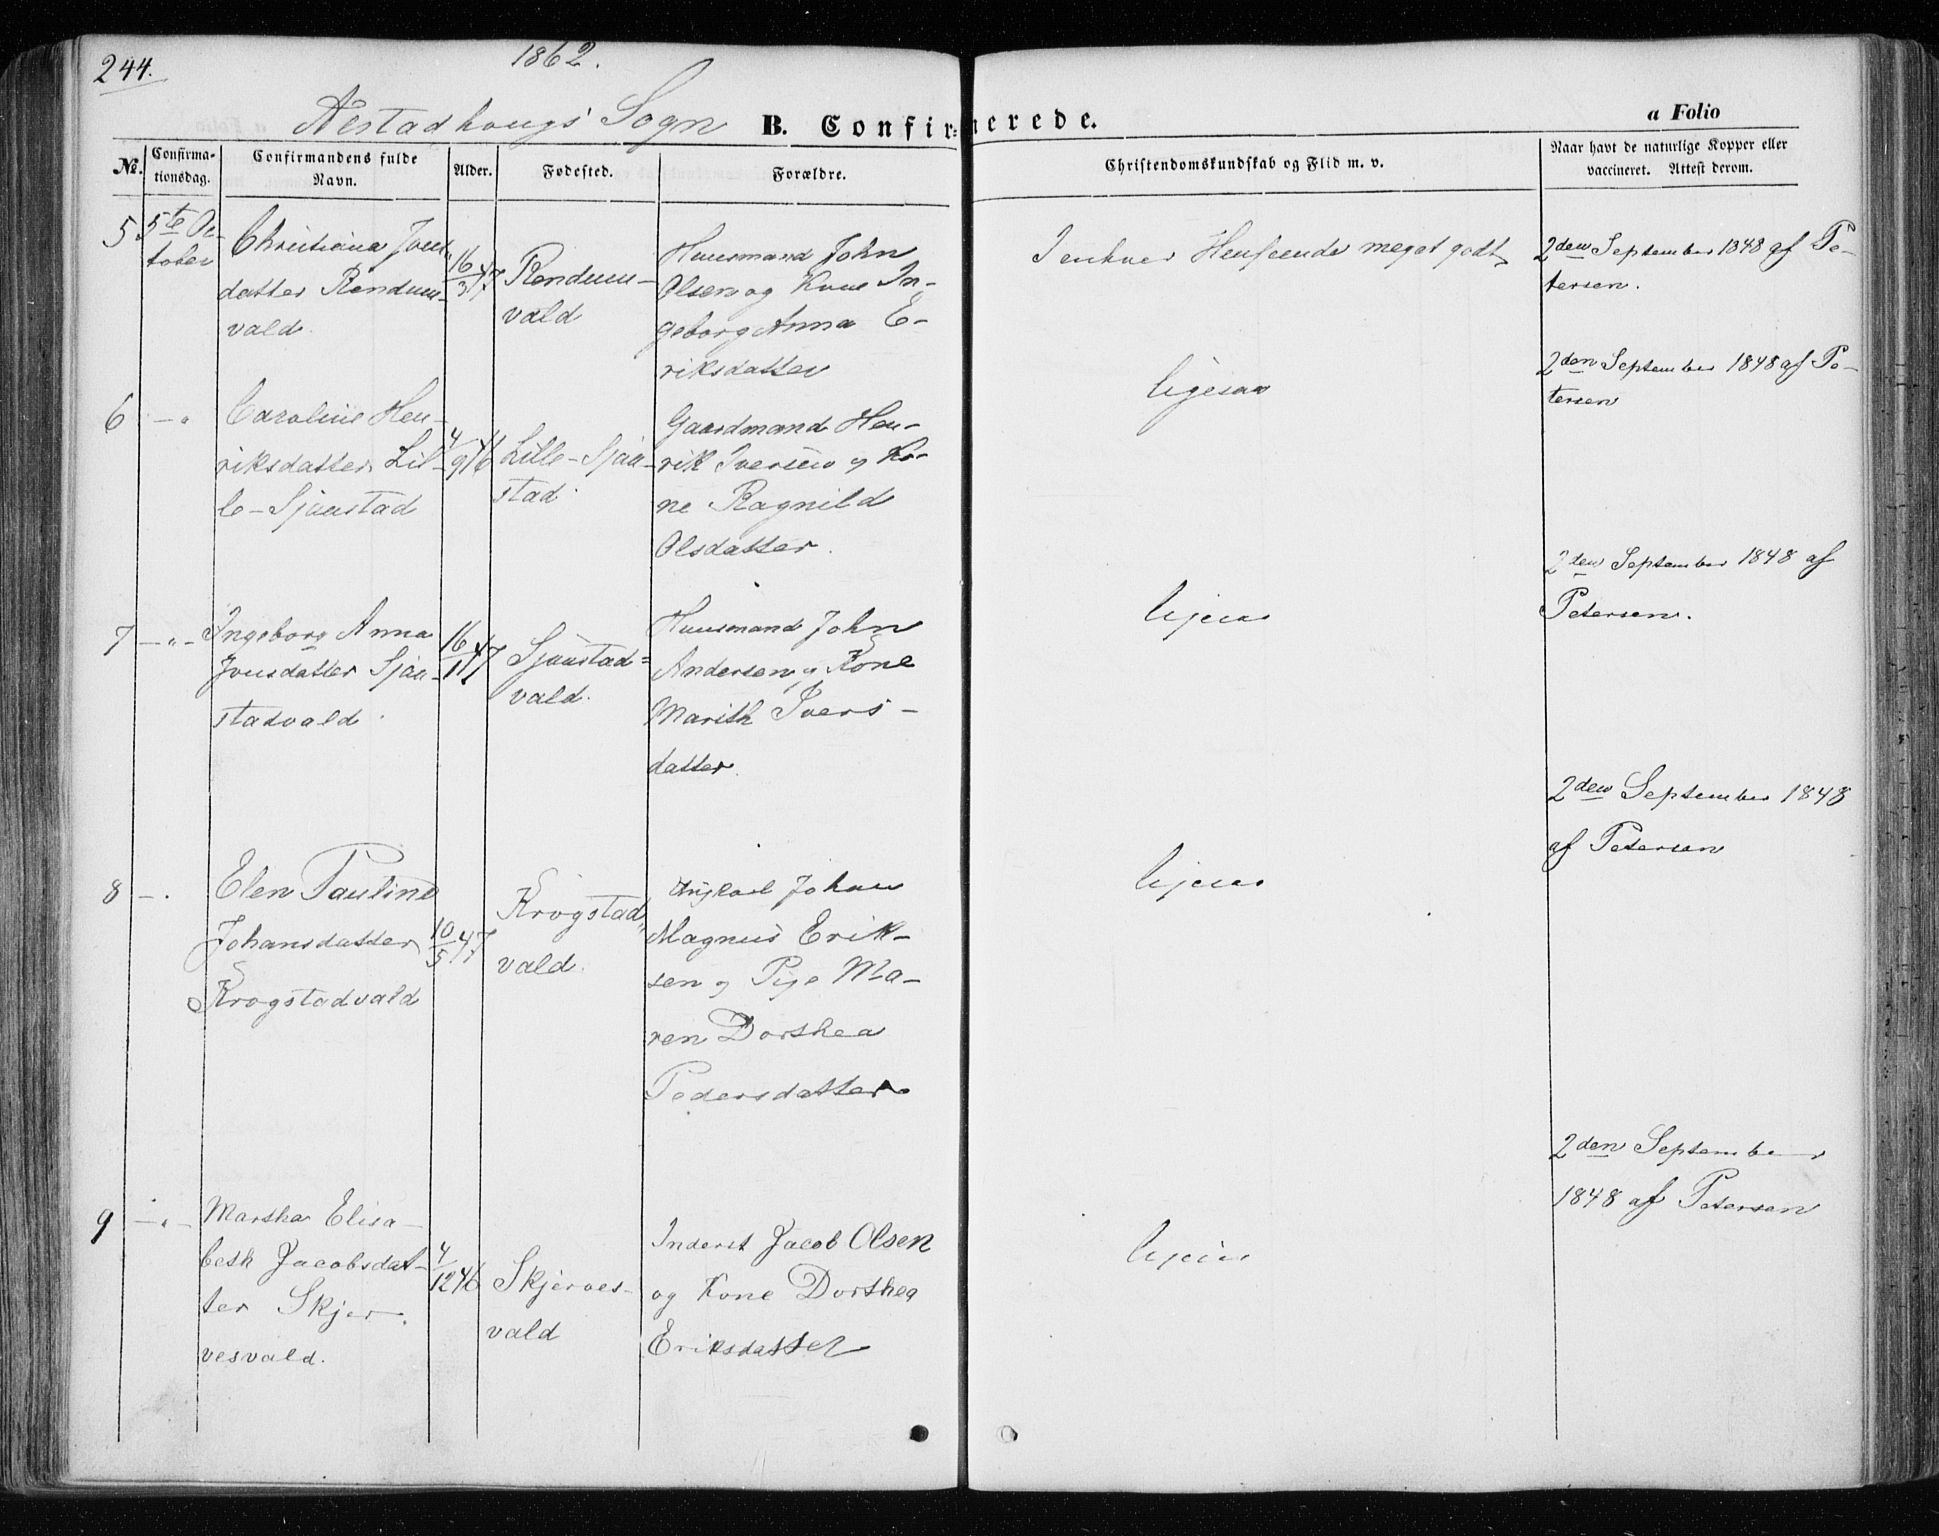 244.
1862.
Nestadhougs Sogn B. Confirmerede.
a Folio
No. Confirmationsdag. Confirmandens fulde Navn. Alder. Fødested. Forældre. Christendomskundskab og Flid m. v. Naar havt de naturlige Kopper eller vaccineret. Attest derom.
5. 5te Oc-
tober
Christiana Jons-
datter Rendum-
vald.
16/3 47
Rendum-
vald
Huusmand John
Olsen og Kone In-
geborg Anna E-
riksdatter
I enhver Henseende meget godt
2den September 1848 af Pe-
tersen.
6 - "
Caroline Hen-
riksdatter Lil-
le-Sjaastad
4/9 46
Lille-Sjaa-
stad.
Gaardmand Hen-
rik Iversen og Ko-
ne Ragnild
Olsdatter.
ligesaa
2den September 1848 af Pe-
tersen
7 - " -
Ingeborg Anna
Jonsdatter Sjaa-
stadvald.
16/1 47
Sjaastad=
vald.
Huusmand John
Andersen og Kone
Marith Ivers-
datter.
ligesaa
2den September 1848 af
Petersen.
8 - .
Elen Pauline
Johansdatter
Krogstadvald
10/5 47
Krogstad-
vald.
Johan
Magnus Erik-
sen og Pige Ma-
ren Dorthea
Pedersdatter.
ligesaa
2den September 1848
af Petersen
9 - " -
Martha Elisa-
beth Jacobsdat-
ter Skjer-
vesvald.
4/12 46
Skjerves-
vald
Inderst Jacob Olsen
og Kone Dorthea
Eriksdatter
ligesaa
2den September
1848 af Petersen